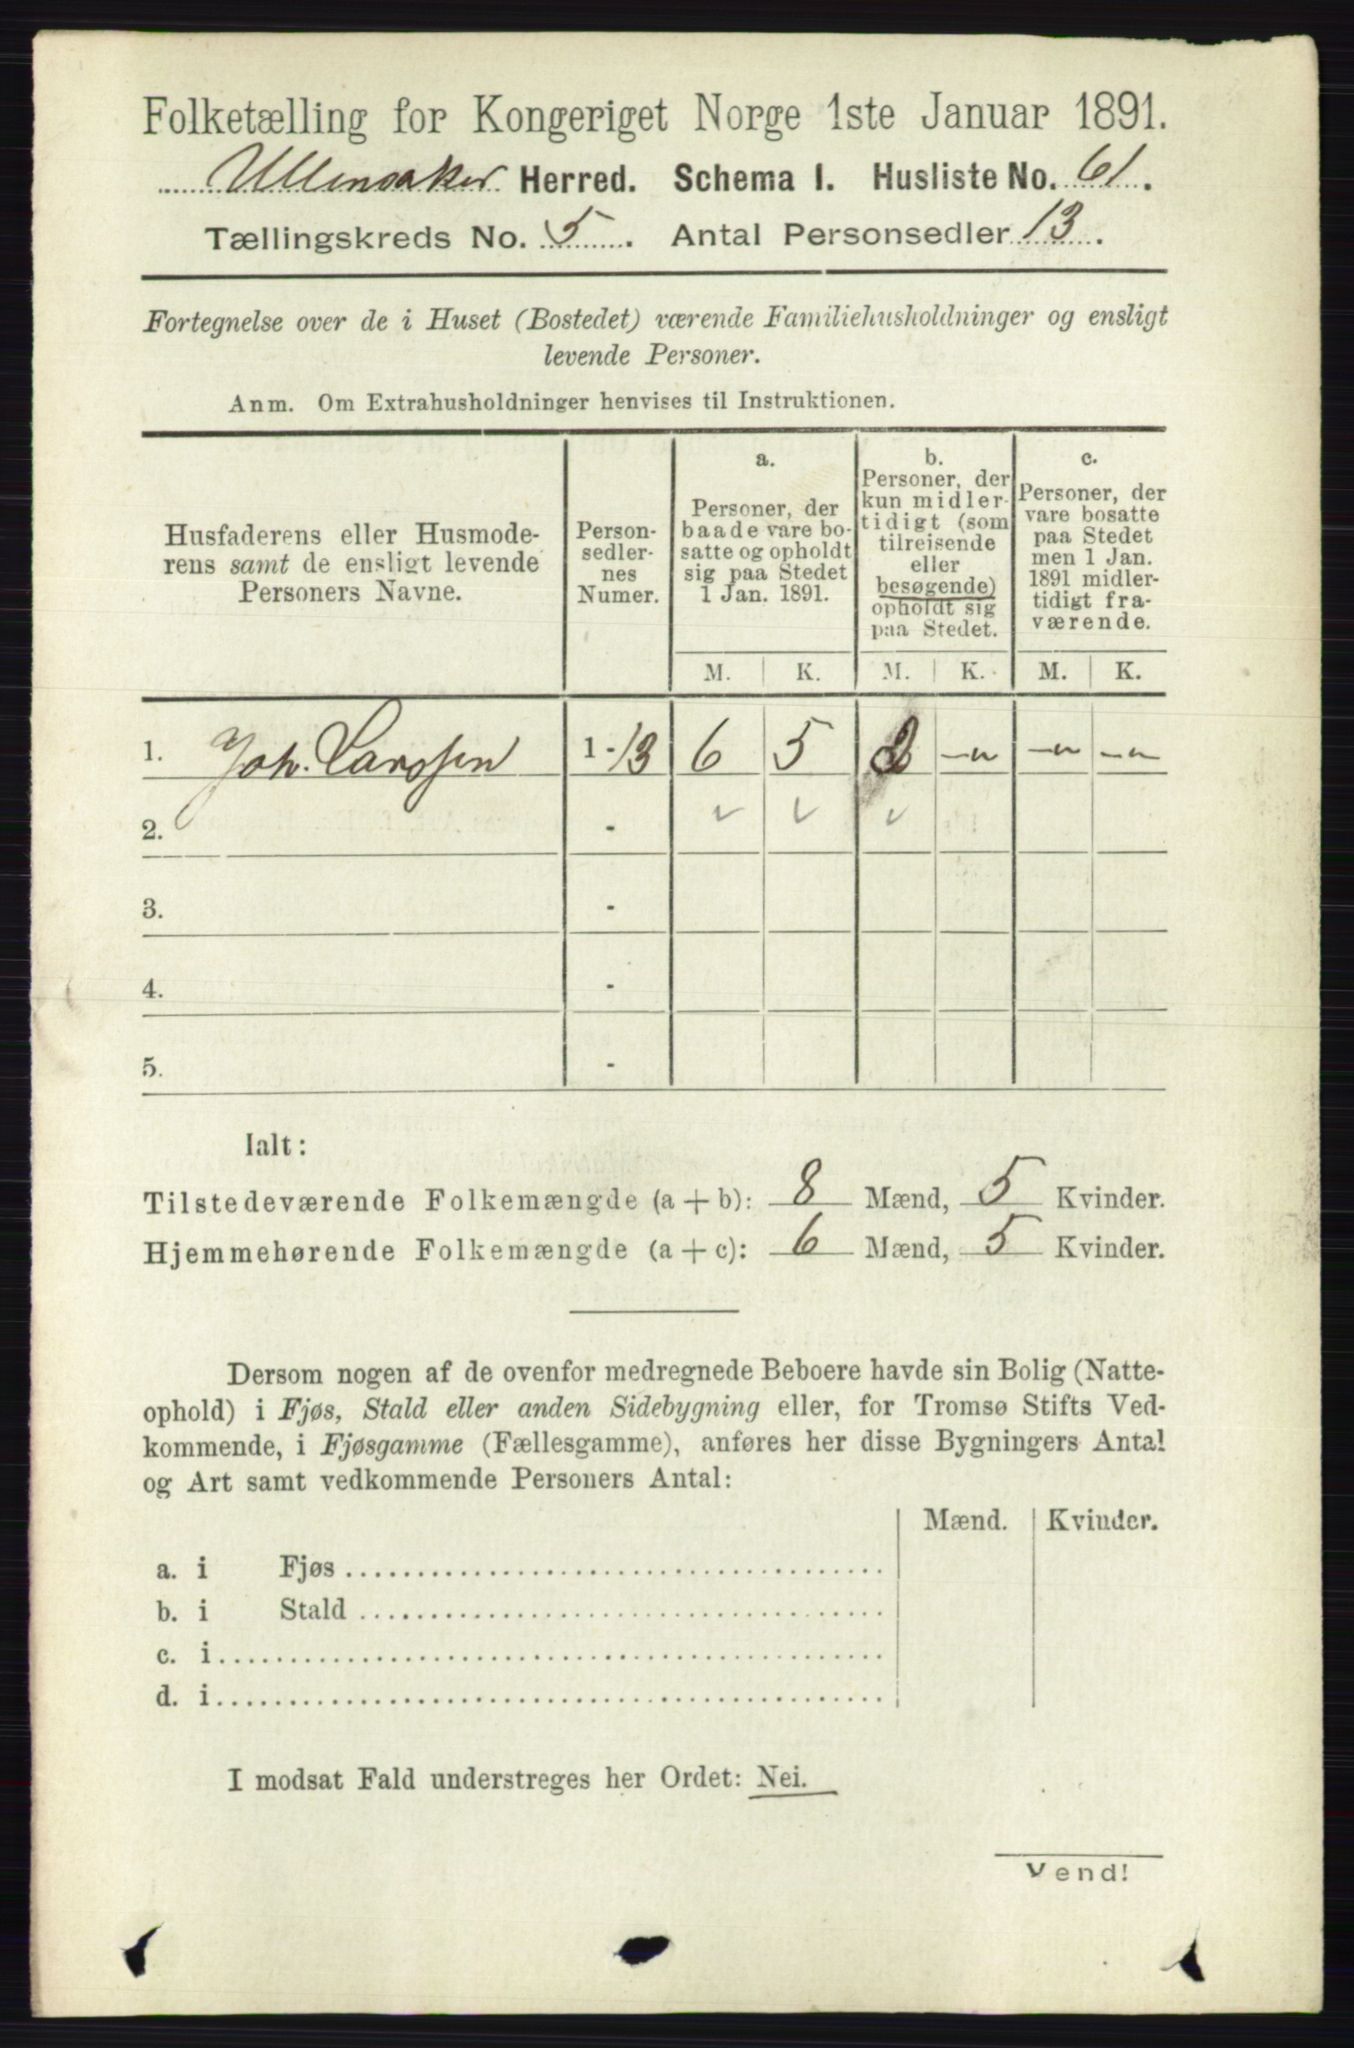 Folketælling for Kongeriget Norge 1ste Januar 1891.
Ullensaker Herred. Schema I. Husliste No. 61.
Tællingskreds No. 5. Antal Personsedler 13.
Fortegnelse over de i Huset (Bostedet) værende Familiehusholdninger og ensligt
levende Personer.
Anm. Om Extrahusholdninger henvises til Instruktionen.
Husfaderens eller Husmode-
rens samt de ensligt levende
Personers Navne.
Person-
sedler-
nes
Numer.
a.
Personer, der
baade vare bo-
satte og opholdt
sig paa Stedet
1 Jan. 1891.
b.
Personer, der
kun midler-
tidigt (som
tilreisende
eller
besøgende)
opholdt sig
paa Stedet.
c.
Personer, der
vare bosatte
paa Stedet
men 1 Jan.
1891 midler-
tidigt fra-
værende.
M. K. M. K. M. K.
1. Joh. Larssen 1-13 6 5 2 -"- -"- -"-
2. - ✓ ✓ ✓
3. -
4. -
5. -
Ialt:
Tilstedeværende Folkemængde (a + b): 8 Mænd, 5 Kvinder.
Hjemmehørende Folkemængde (a + c): 6 Mænd, 5 Kvinder.
Dersom nogen af de ovenfor medregnede Beboere havde sin Bolig (Natte-
ophold) i Fjøs, Stald eller anden Sidebygning eller, for Tromsø Stifts Ved-
kommende, i Fjøsgamme (Fællesgamme), anføres her disse Bygningers Antal
og Art samt vedkommende Personers Antal:
Mænd. Kvinder.
a. i Fjøs
b. i Stald
c. i
d. i
I modsat Fald understreges her Ordet: Nei.
Vend!